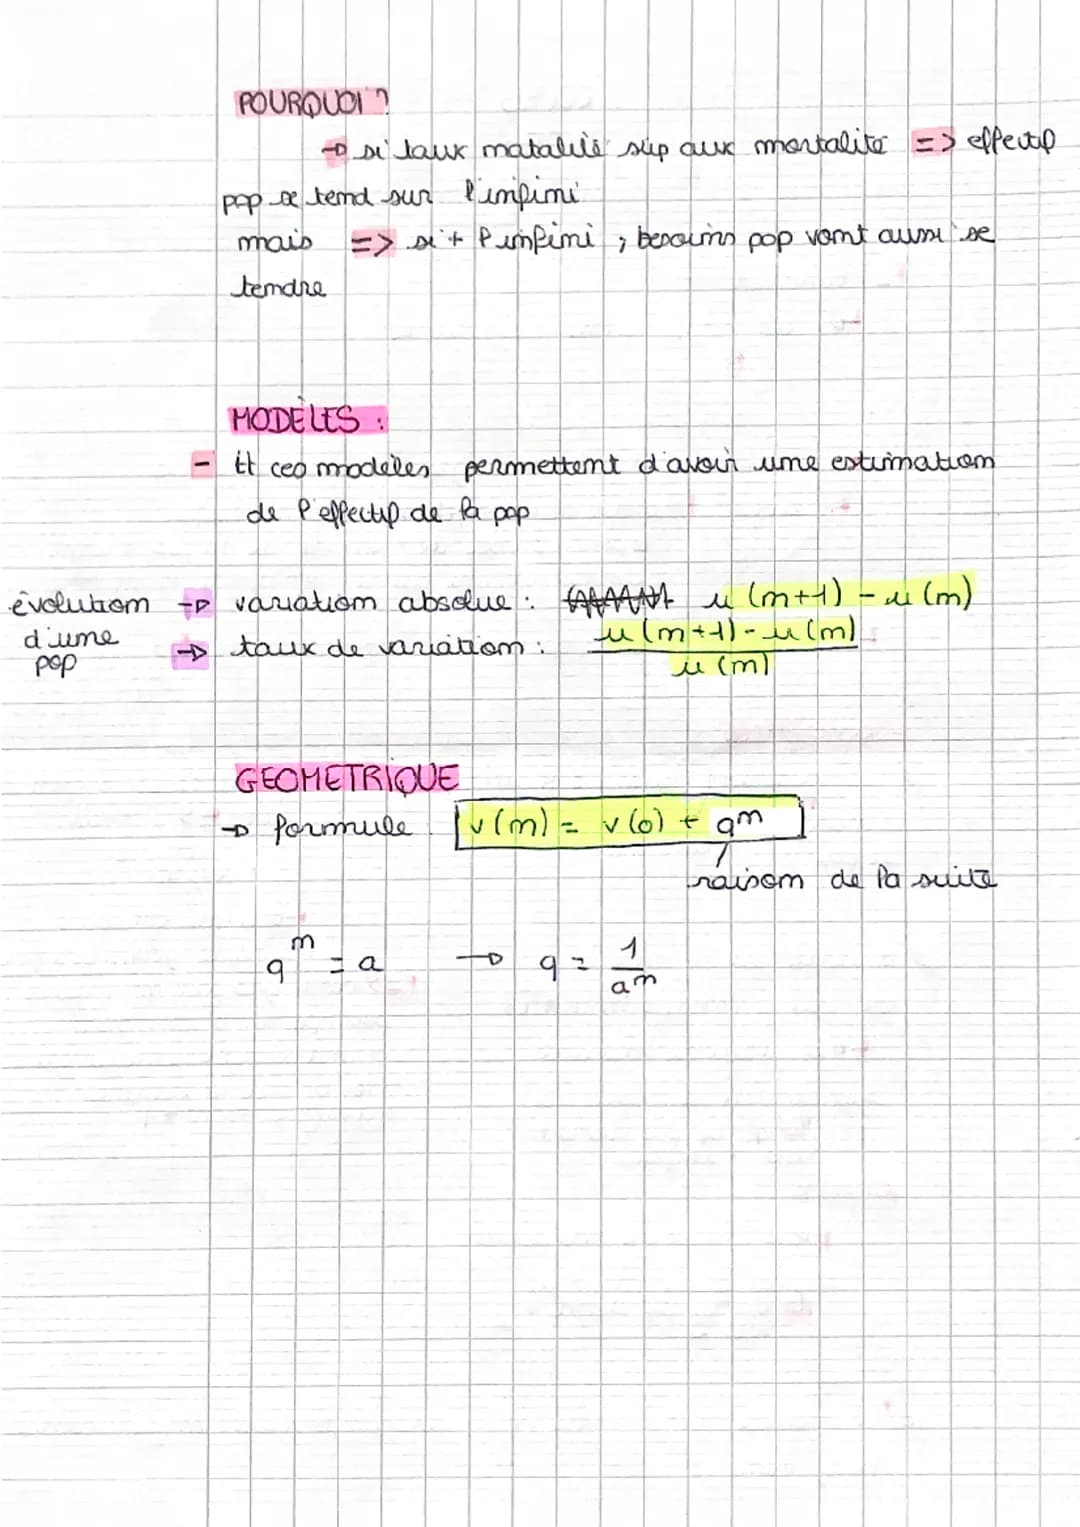 POURQUOI ?
→ si taux natalité sup aux mortalité => effectif
pop se tend sur l'infini
mais => si + l'infini, besoins pop vont aussi se
tendre
MODÈLES :
- tt ces modèles permettent d'avoir une estimation
de l'effectif de la pop
évolution → variation absolue : u(n+1) - u(n)
d'une → taux de variation : u(n+1) - u(n)
pop u(n)
GEOMETRIQUE
→ formule v(n) = v(0) + qn
raison de la suite
q^n = a → q = 1
a^n